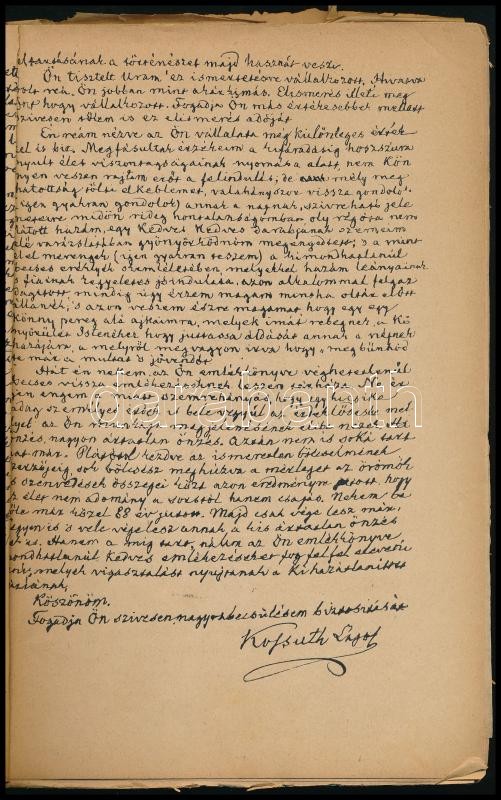 tartásának a történészet majd hasznát veszi.
Ön tisztelt Uram! ez ismertetésre vállalkozott. Hivatva
volt reá. Ön jobban mint akárki más. Elismerés illeti meg
hogy vállalkozott. Fogadja Ön más értékesebbek mellett
szivesen tőlem is ez elismerés adóját
Én reám nézve az Ön vállalata még különleges érték
el is bir. Megfásultak érzéseim a kifáradásig hosszúra
nyult élet viszontagságainak nyomása alatt, nem kön
nyen veszen rajtam erőt a felindulás; de mély meg
hatottság tölti el keblemet, valahányszor vissza gondolok
igen gyakran gondolok) annak a napnak, szivreható jele
neteire midőn rideg hontalanságomban oly rég óta nem
látott hazám, egy kedves kedves darabjának szemeim
elé varázslatában gyönyörködnöm megengedtetett; s a mint
el merengek (igen gyakran teszem) a kimondhatlanúl
becses ereklyék szemléletében, melyekkel hazám leányainak
s fiainak kegyeletes jóindulata, azon alkalommal
mindig úgy érzem magam mintha oltár előtt
állanék; s azon veszem észre magamat, hogy egy egy
könny pereg alá ajkaimra, melyek imát rebegnek, a Kö
nyörület Istenéhez hogy juttassa áldását annak a népnek
hazájára, a melyről meg vagyon irva hogy „megbünhöd
te már a multat s jövendőt”
Hát én nekem az Ön emlékkönyve véghetetlenül
becses vissza emlékezéseknek leszen
engem a miatt szemrehányás, hogy egy
személyes is belevegyül az
az Ön munkája megjelenésének én nézek
önzés, nagyon ártatlan önzés. Aztán nem is soká tart
már. kezdve az ismeretlen bölcseletnek
sok bölcsész meghúzta a mérleget az örömök
s szenvedések összegei közt azon eredményre jutott, hogy
az élet nem adomány a sorstól hanem csapás. Nekem be
lőle már közel 88 év jutott. Majd csak vége lesz már,
s vele vége lesz annak a kis ártatlan önzés
is. Hanem a mig tart, nálam az Ön emlékkönyve
mondhatlanúl kedves emlékezéseket fog fel fel eleveni
teni, melyek vigasztalást nyújtanak a Kihazátlanított
Köszönöm.
Fogadja Ön szivesen nagyrabecsülésem biztosítását
Kossuth Lajos
darabanth